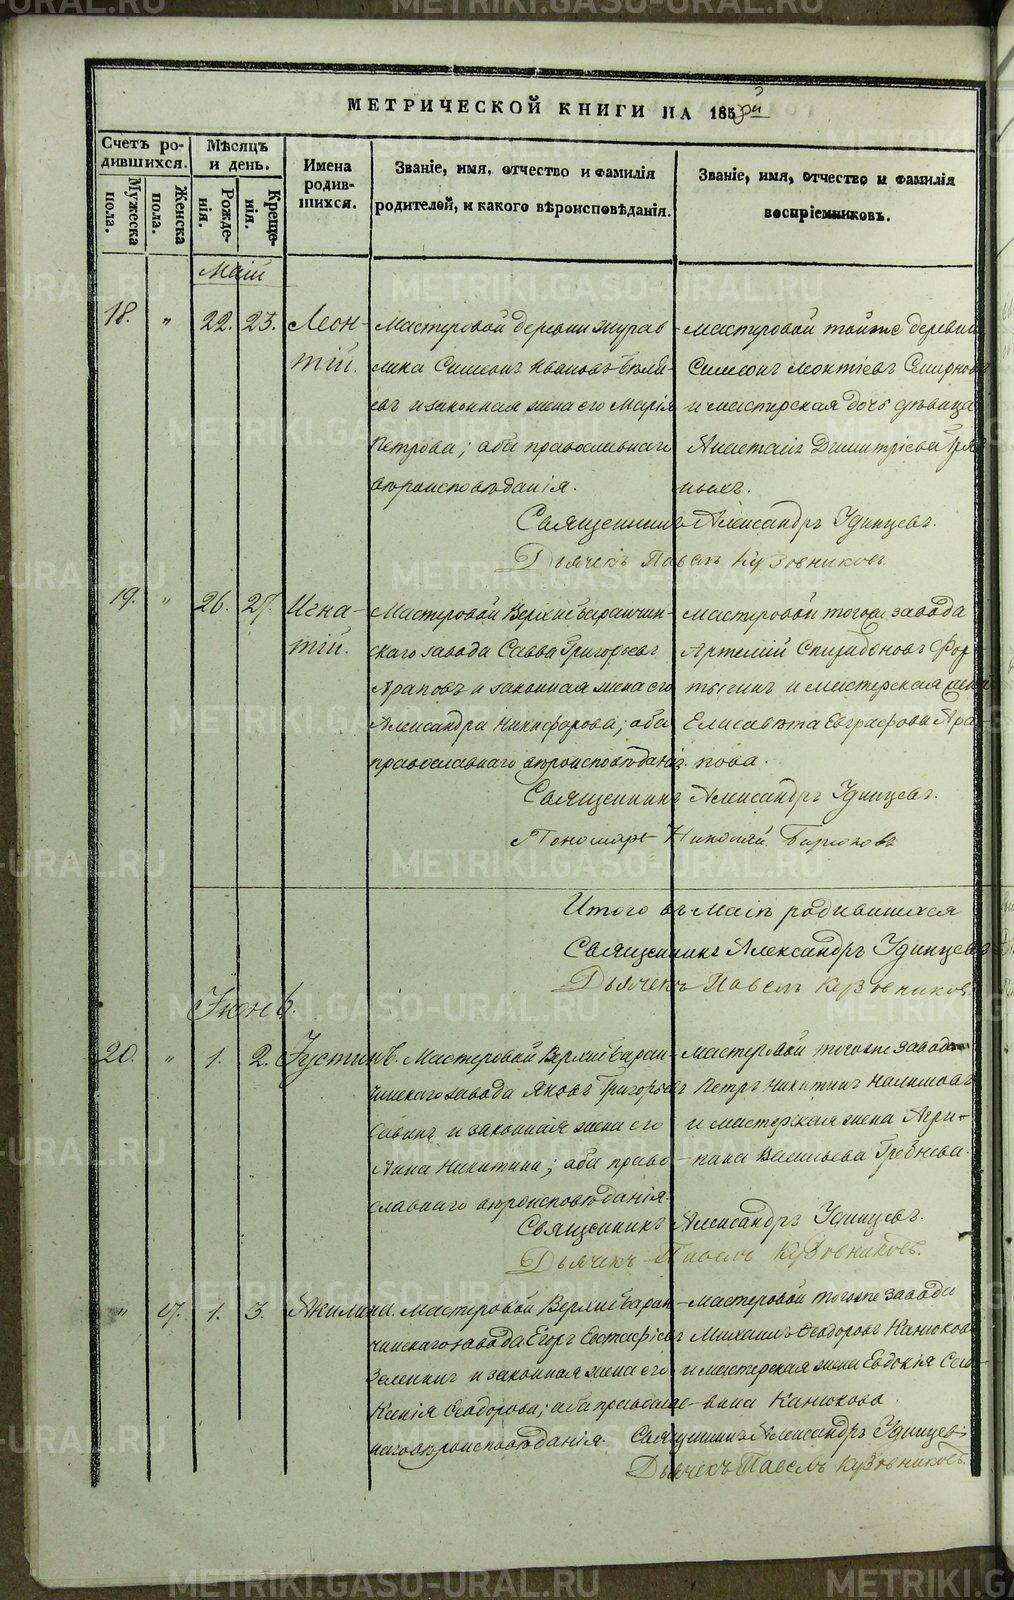 МЕТРИЧЕСКОЙ КНИГИ НА 185
Счетъ родившихся.
Мужеска пола.
Женска пола.
Мѣсяцъ и день.
Рожденія.
Крещенія.
Имена родившихся.
Званіе, имя, отчество и фамилія родителей, и какого вѣроисповѣданія.
Званіе, имя, отчество и фамилія воспріемниковъ.
Маій
18. " 22. 23. Леонтій.
Мастеровой деревни
Симеонъ Ивановъ
и законная жена его Марія
Петрова; оба православнаго
вѣроисповѣданія.
Мастеровой тойже деревни
Симеонъ Леонтіевъ Смирновъ
и мастерская дочь дѣвица
Анастасія Димитріева
Священникъ Александръ Удинцевъ.
Дьячекъ Павелъ Кузовниковъ.
19. " 26. 27. Игнатій.
Мастеровой Верхнебаранчин-
скаго завода Савва Григорьевъ
Араповъ и законная жена его
Александра Никифорова; оба
православнаго вѣроисповѣданія.
Мастеровой тогоже завода
Артемій Спиридоновъ
и мастерская жена
Елисавета Евграфова Ара-
пова.
Священникъ Александръ Удинцевъ.
Пономарь Николай Бирюковъ
Итого въ Маіѣ родившихся
Священникъ Александръ Удинцевъ
Дьячекъ Павелъ Кузовниковъ.
Іюнь.
20. " 1. 2. Іустинъ.
Мастеровой Верхнебаран-
чинскаго завода Яковъ Григорьевъ
Савинъ и законная жена его
Анна Никитина; оба право-
славнаго вѣроисповѣданія.
Мастеровой тогоже завода
Петръ Никитинъ
и мастерская жена Агри-
пина Васильева Гребнева.
Священникъ Александръ Удинцевъ.
Дьячекъ Павелъ Кузовниковъ.
" 1. 3. Акилина.
Мастеровой Верхнебаран-
чинскаго завода Егоръ Евстафіевъ
и законная жена его
Ксенія Ѳеодорова; оба православ-
наго вѣроисповѣданія.
Мастеровой тогоже завода
Михаилъ Ѳеодоровъ Канюковъ
и мастерская жена Евдокія Сав-
вина Канюкова.
Священникъ Александръ Удинцевъ
Дьячекъ Павелъ Кузовниковъ.
METRIKI.GASO-URAL.RU